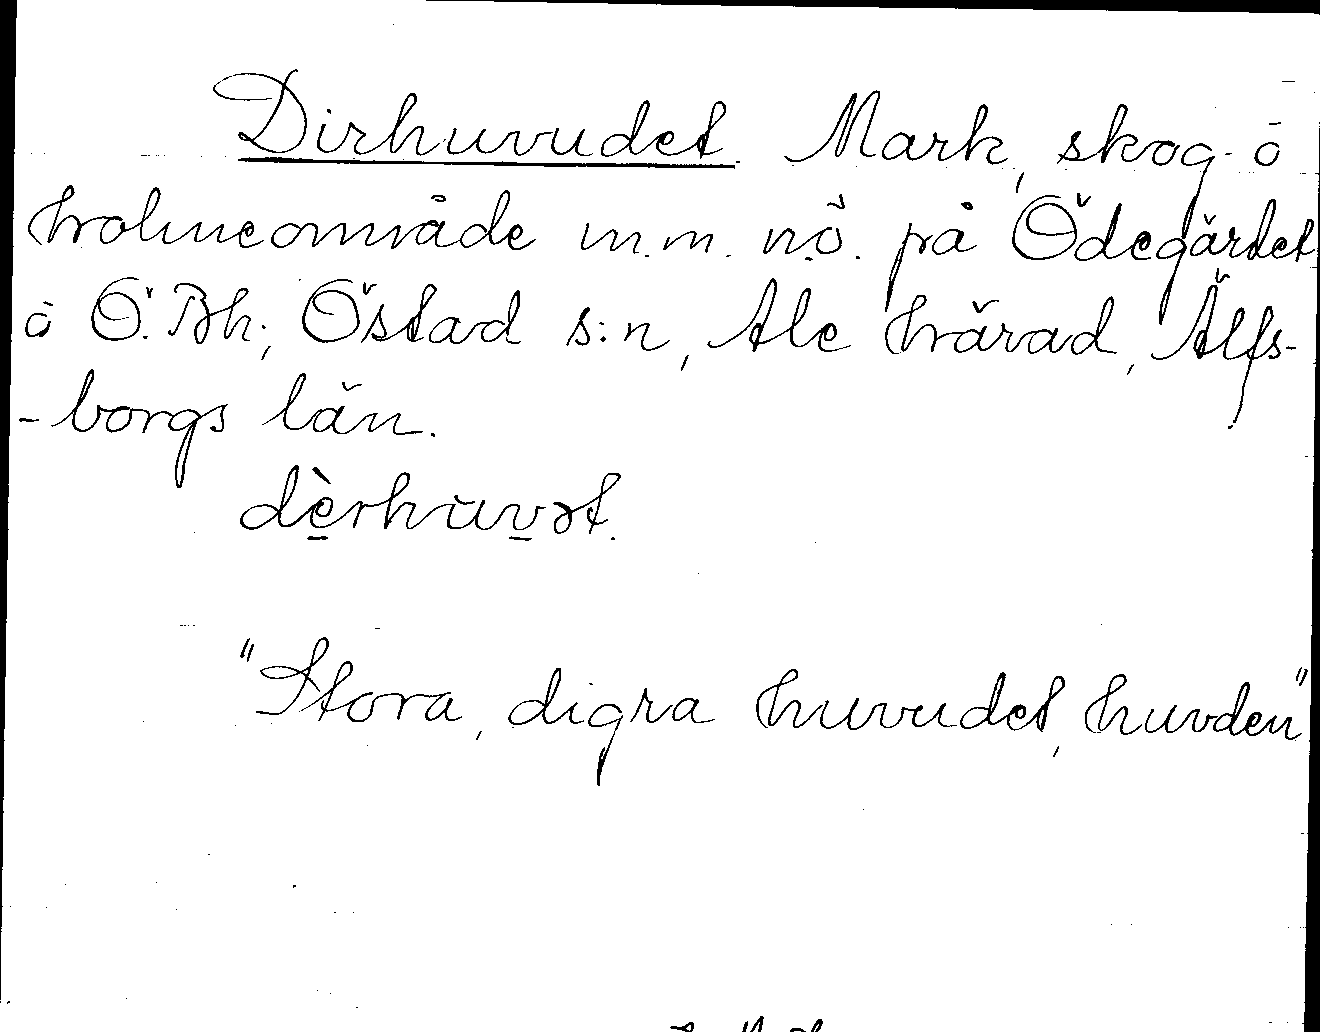 Dirhuvudet. Mark, skog- o
holmeområde m.m. n.ö. på Ödegärdet
ö Ö. Bh; Östad s:n, Ale härad, Älfs-
-borgs län.
dèrhūvət.
"Stora, digra huvudet, huvden"